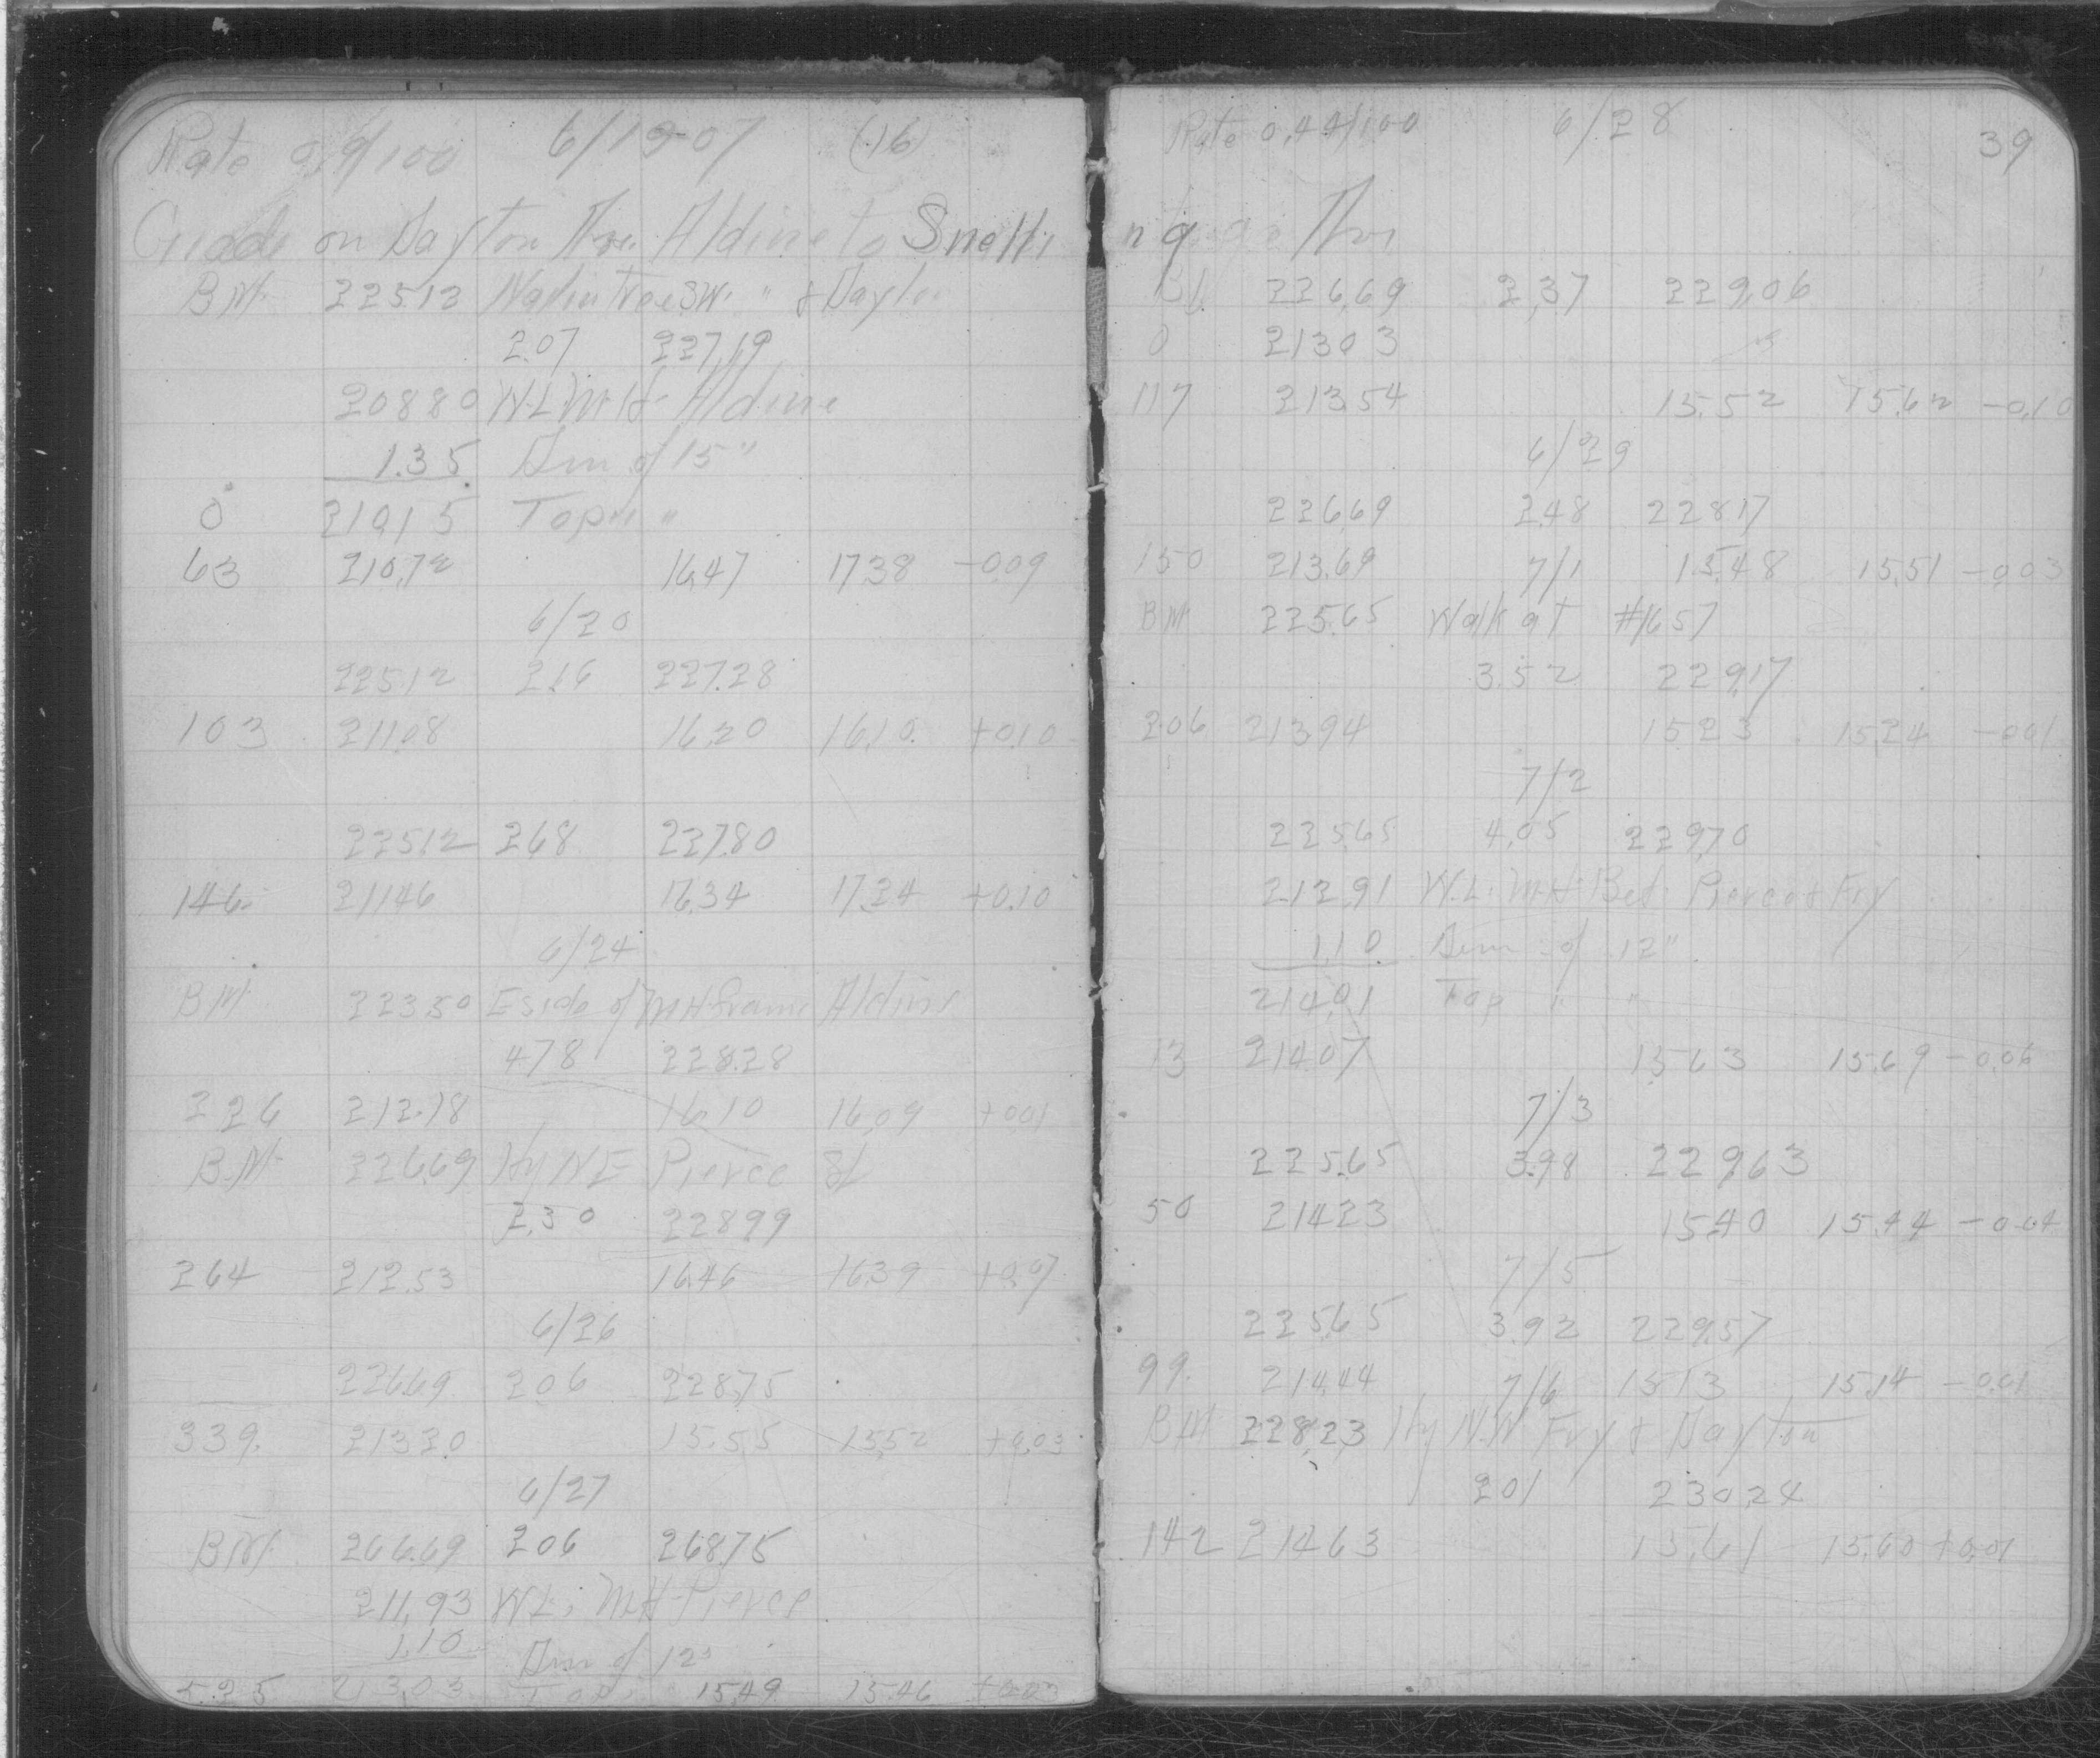 Rate 0.9/100 6/19-07 (16)
Grade on Dayton Ave. Aldine to Snelli
BM. 225.12 Nail in Tree SW. " & Dayton
2.07 227.19
208.80 W.L. M.H. Aldine
1.35 Dim of 15"
0 210.15 Top " "
63 210.72 16.47 17.38 -0.09
6/20
225.12 2.16 227.28
103 211.08 16.20 16.10 +0.10
225.12 2.68 227.80
146 211.46 16.34 17.24 +0.10
6/24
BM. 223.50 E side of M.H. frame Aldine
4.78 228.28
226 212.18 16.10 16.09 +0.01
B.M. 226.69 Hy NE Pierce St
2.30 228.99
264 212.53 16.46 16.39 +0.07
6/26
226.69 2.06 228.75
339 213.20 15.55 15.52 +0.03
6/27
BM. 266.69 2.06 268.75
211.93 W.L. M.H. Pierce
1.10 Dim of 12"
213.03 Top 15.49 15.46 +0.03
Rate 0.44/100 6/28 39
ng Ave
BM. 226.69 2.37 229.06
0 213.03
117 213.54 15.52 15.62 -0.10
6/29
226.69 2.48 228.17
150 213.69 7/1 15.48 15.51 -0.03
BM 225.65 Walk at #1657
3.52 229.17
206 213.94 15.23 15.24 -0.01
7/2
225.65 4.05 229.70
212.91 W.L. M.H. Bet. Pierce & Fry
1.10 Dim of 12"
214.01 Top " "
13 214.07 15.63 15.69 -0.06
7/3
225.65 3.98 229.63
50 214.23 15.40 15.44 -0.04
7/5
225.65 3.92 229.57
99 214.44 7/6 15.13 15.14 -0.01
BM 228.23 Hy N.W Fry & Dayton
2.01 230.24
142 214.63 15.61 15.60 +0.01